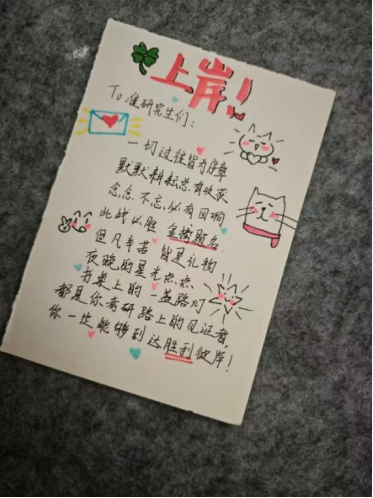 上岸！
To 准研究生们：
一切过往皆为序章
默默耕耘总有收获
念念不忘，必有回响
此战必胜 金榜题名
但凡辛苦 皆是礼物
夜晚的星光点点
书桌上的一盏路灯
都是你考研路上的见证者，
你一定能够到达胜利彼岸！